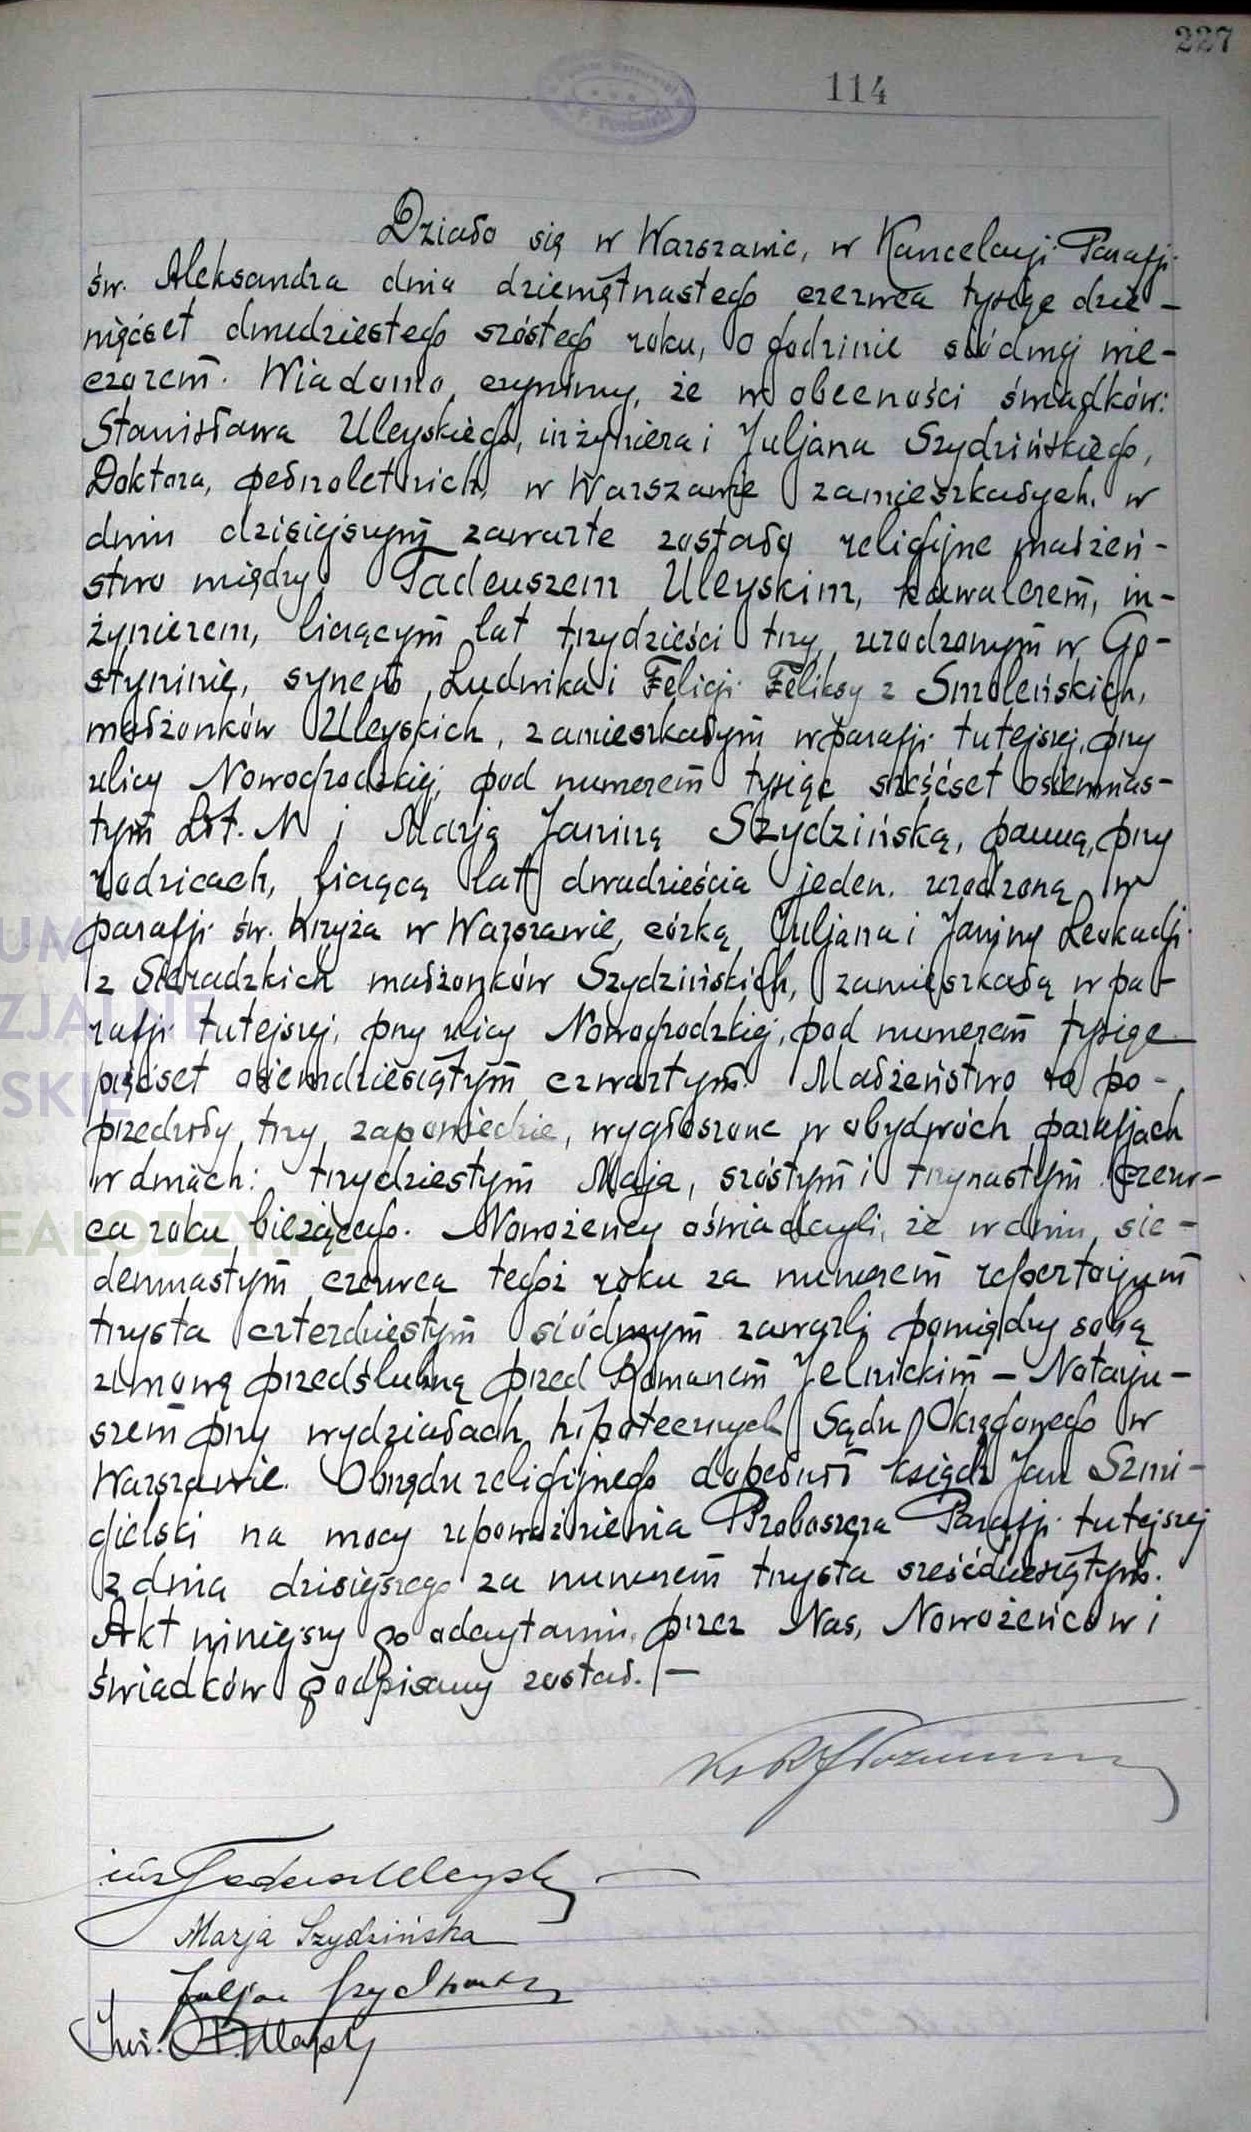 227
114
Działo się w Warszawie, w Kancelarji Parafji
św. Aleksandra dnia dziewiętnastego czerwca tysiąc dzie-
więćset dwudziestego szóstego roku, o godzinie siódmej wie-
czorem. Wiadomo czynimy, że w obecności świadków:
Stanisława Uleyskiego, inżyniera i Juljana Szydzińskiego,
Doktora, pełnoletnich, w Warszawie zamieszkałych, w
dniu dzisiejszym zawarte zostało religijne małżeń-
stwo między Tadeuszem Uleyskim, kawalerem, in-
żynierem, liczącym lat trzydzieści trzy, urodzonym w Go-
styninie, synem Ludwika i Felicji Feliksy z Smoleńskich,
małżonków Uleyskich, zamieszkałym w parafji tutejszej, przy
ulicy Nowogrodzkiej, pod numerem tysiąc sześćset osiemnas-
tym Lit. N i Marją Janiną Szydzińską, panną, przy
rodzicach, liczącą lat dwadzieścia jeden, urodzoną w
parafji św. Krzyża w Warszawie, córką Juljana i Janiny Leokadji
z Sieradzkich małżonków Szydzińskich, zamieszkałą w pa-
rafji tutejszej, przy ulicy Nowogrodzkiej, pod numerem tysiąc
pięćset osiemdziesiątym czwartym. Małżeństwo to po-
przedziły trzy zapowiedzie, wygłoszone w obydwóch parafjach
w dniach: trzydziestym Maja, szóstym i trzynastym czerw-
ca roku bieżącego. Nowożeńcy oświadczyli, że w dniu sie-
demnastym czerwca tegoż roku za numerem repertorjum
trzysta czterdziestym siódmym zawarli pomiędzy sobą
umowę przedślubną przed Romanem Jelnickim – Notarju-
szem przy wydziałach hipotecznych Sądu Okręgowego w
Warszawie. Obrzędu religijnego dopełnił ksiądz Jan Szmi-
gielski na mocy upoważnienia Proboszcza Parafji tutejszej
z dnia dzisiejszego za numerem trzysta sześćdziesiątym.
Akt niniejszy po odczytaniu, przez Nas, Nowożeńców i
świadków podpisany został. –
inż Tadeusz Uleyski
Marja Szydzińska
Juljan Szydziński
Inż. Uleyski